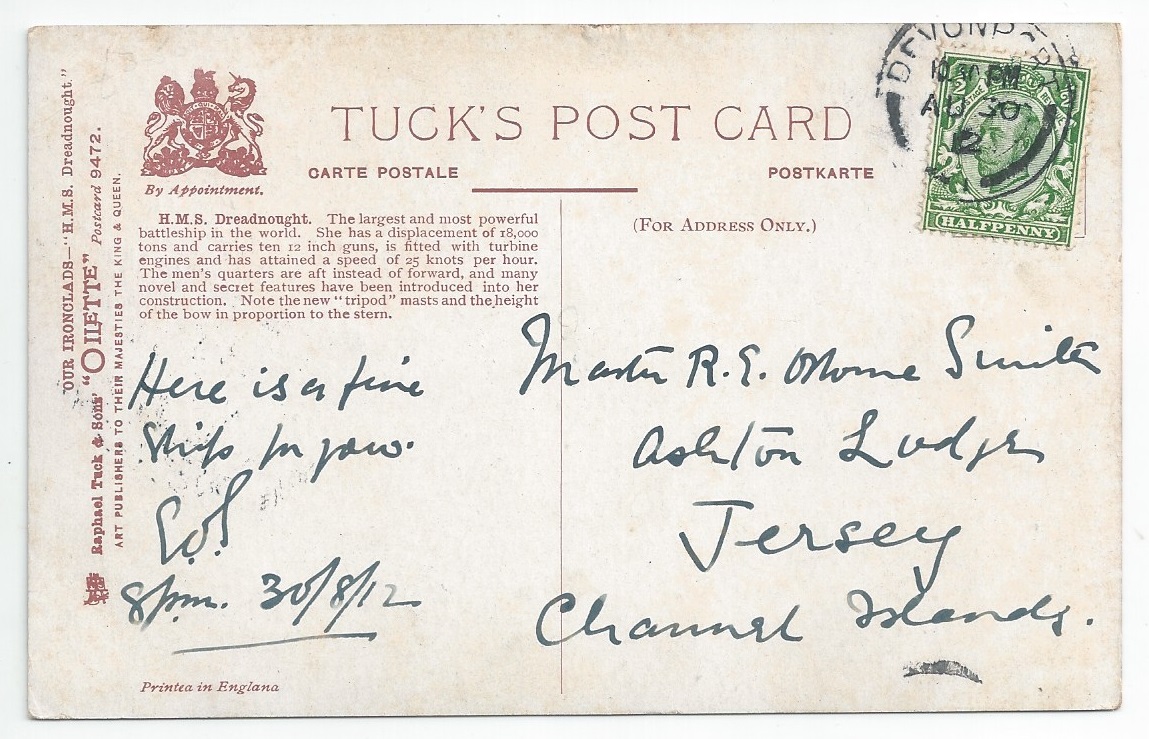 "OUR IRONCLADS—"H.M.S. Dreadnought."
Raphael Tuck & Sons' "OILETTE" Postcard 9472.
ART PUBLISHERS TO THEIR MAJESTIES THE KING & QUEEN.
By Appointment.
TUCK'S POST CARD
CARTE POSTALE
POSTKARTE
H.M.S. Dreadnought. The largest and most powerful
battleship in the world. She has a displacement of 18,000
tons and carries ten 12 inch guns, is fitted with turbine
engines and has attained a speed of 25 knots per hour.
The men's quarters are aft instead of forward, and many
novel and secret features have been introduced into her
construction. Note the new "tripod" masts and the height
of the bow in proportion to the stern.
(For Address Only.)
DEVONPORT
10.30 PM
AU 30
12
HALFPENNY
Here is a fine
Ship for you.
8pm. 30/8/12
Master R.E. Osborne Smith
Ashton Lodge
Jersey
Channel Islands.
Printed in England